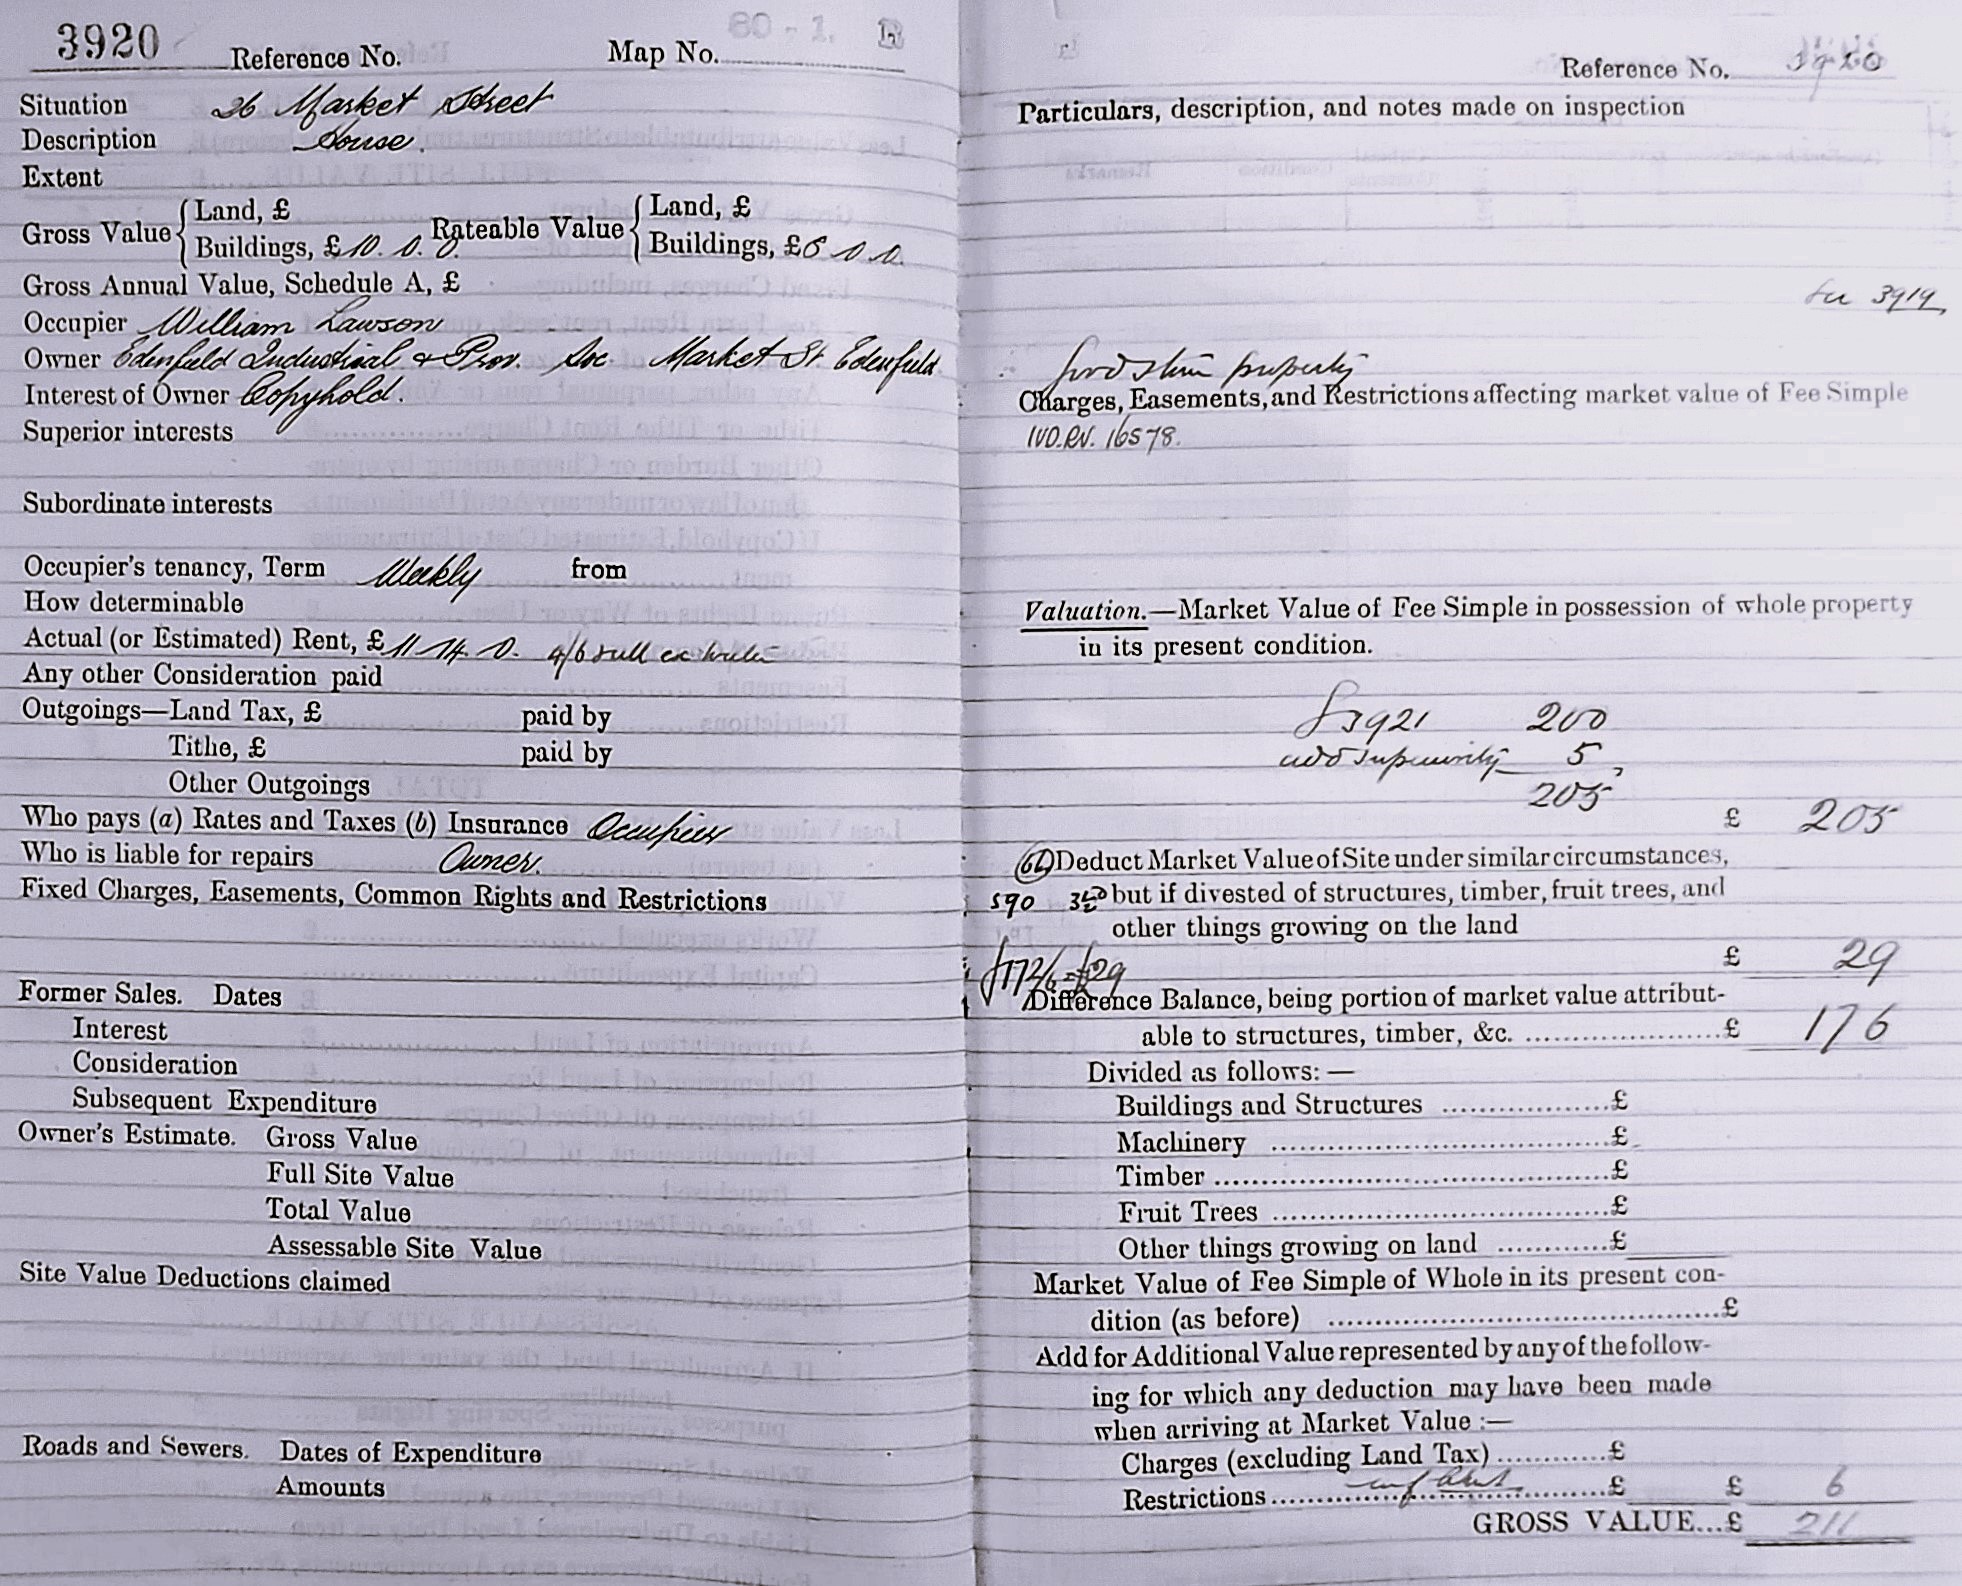 3920 Reference No. Map No. 80 - 1.
Situation 26 Market Street
Description House.
Extent
Gross Value { Land, £
Buildings, £ 10. 0. 0. Rateable Value { Land, £
Buildings, £8 0 0.
Gross Annual Value, Schedule A, £
Occupier William Lawson
Owner Edenfield Industrial & Prov. Soc. Market St. Edenfield.
Interest of Owner Copyhold.
Superior interests
Subordinate interests
Occupier's tenancy, Term Weekly from
How determinable
Actual (or Estimated) Rent, £ 11. 14. 0. 4/6
Any other Consideration paid
Outgoings—Land Tax, £ paid by
Tithe, £ paid by
Other Outgoings
Who pays (a) Rates and Taxes (b) Insurance Occupier
Who is liable for repairs Owner.
Fixed Charges, Easements, Common Rights and Restrictions
Former Sales. Dates
Interest
Consideration
Subsequent Expenditure
Owner's Estimate. Gross Value
Full Site Value
Total Value
Assessable Site Value
Site Value Deductions claimed
Roads and Sewers. Dates of Expenditure
Amounts
Reference No. 3920
Particulars, description, and notes made on inspection
3919
property
Charges, Easements, and Restrictions affecting market value of Fee Simple
16578.
Valuation.—Market Value of Fee Simple in possession of whole property
in its present condition.
3921 200
add superiority 5
205
£ 205
Deduct Market Value of Site under similar circumstances,
590 but if divested of structures, timber, fruit trees, and
other things growing on the land
£ 29
172/6 = £29
Difference Balance, being portion of market value attribut-
able to structures, timber, &c. ........ £ 176
Divided as follows: —
Buildings and Structures ........ £
Machinery ........ £
Timber ........ £
Fruit Trees ........ £
Other things growing on land ........ £
Market Value of Fee Simple of Whole in its present con-
dition (as before) ........ £
Add for Additional Value represented by any of the follow-
ing for which any deduction may have been made
when arriving at Market Value :—
Charges (excluding Land Tax) ........ £
Restrictions ........ £ £ 6
GROSS VALUE...£ 211